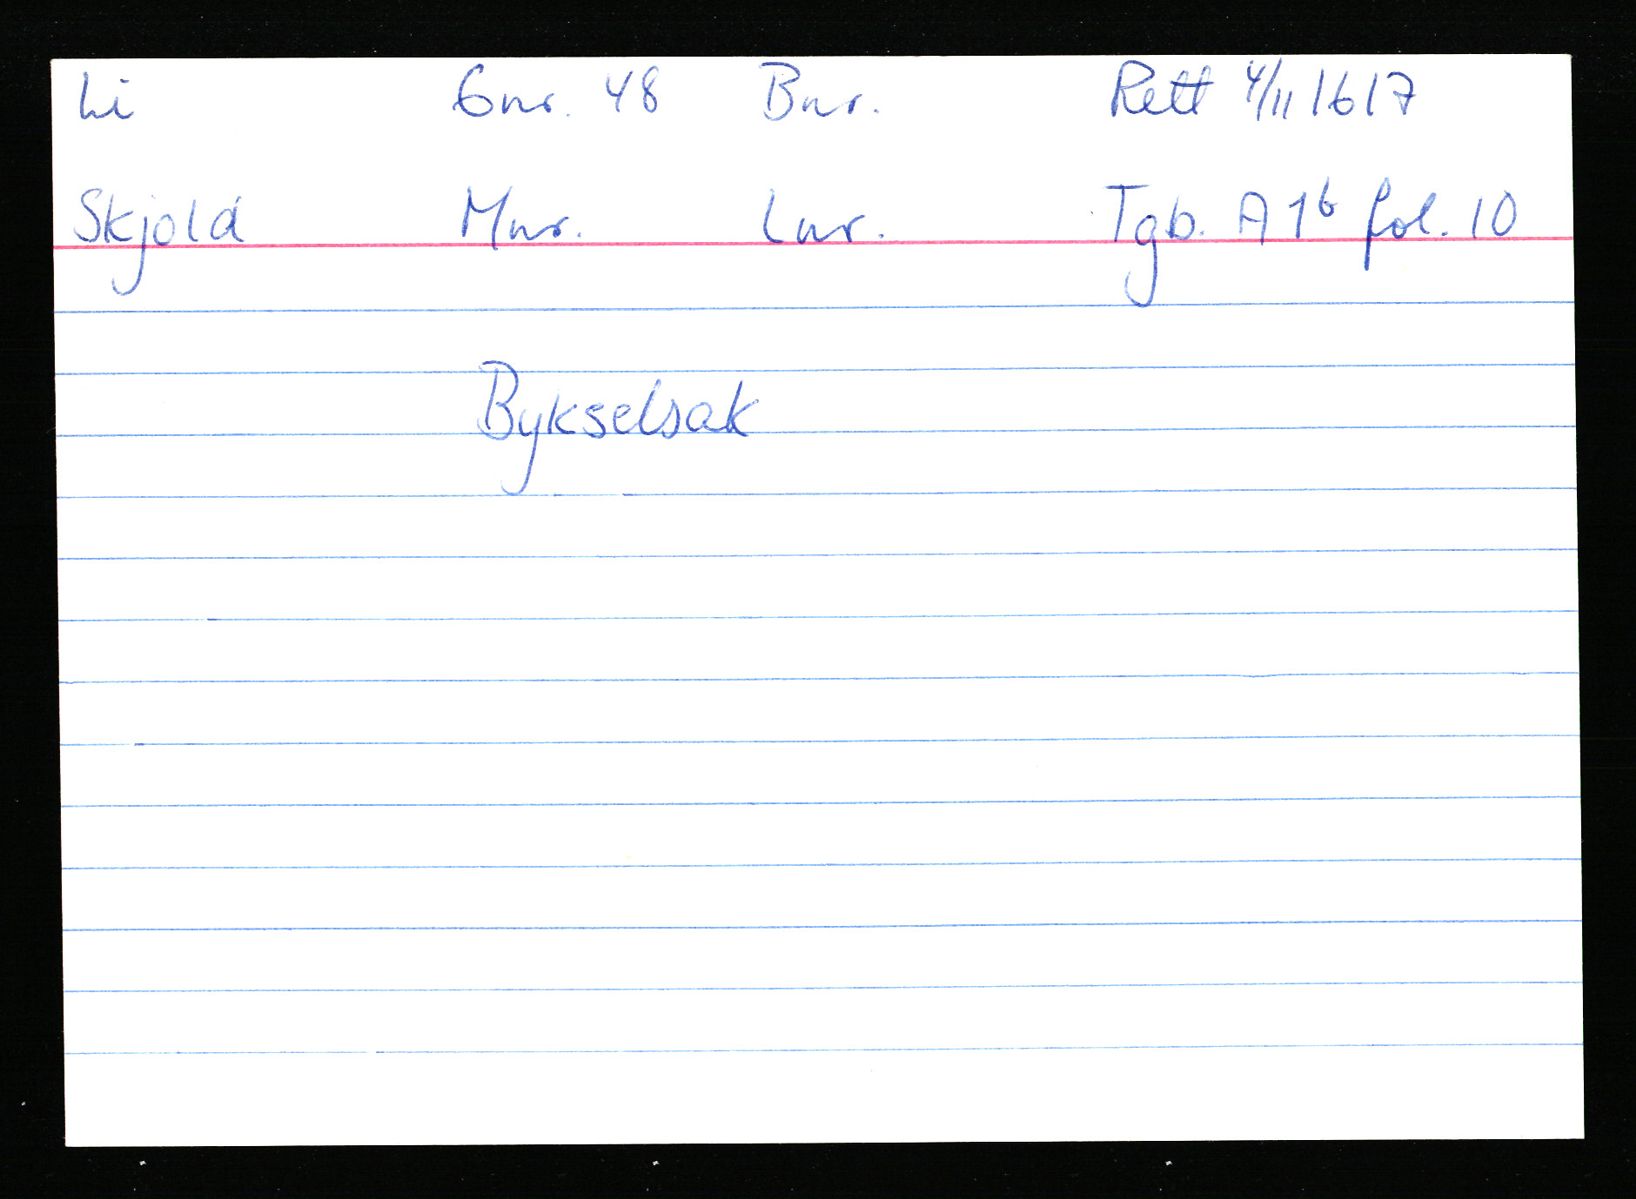 Li Gnr. 48 Bnr. Rett 4/11 1617
Skjold Mnr. Lnr. Tgb. A 1b fol. 10
Bykselsak